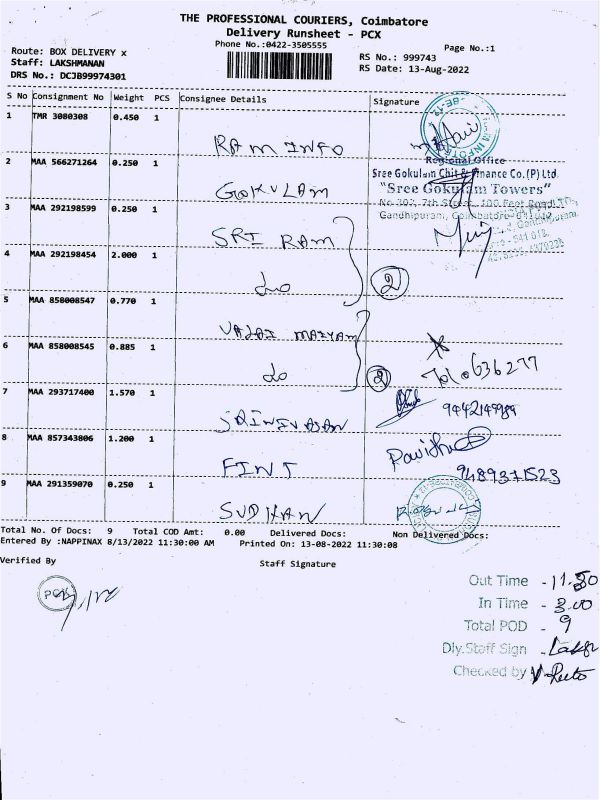 THE PROFESSIONAL COURIERS, Coimbatore
Delivery Runsheet - PCX
Phone No.:0422-3505555
Page No.:1
Route: BOX DELIVERY x
Staff: LAKSHMANAN
DRS No.: DCJB99974301
RS No.: 999743
RS Date: 13-Aug-2022
S No Consignment No Weight PCS Consignee Details Signature
1 TMR 3080308 0.450 1 RAM INFO
Regional Office
2 MAA 566271264 0.250 1 GOKULAM
Sree Gokulam Chit & Finance Co.(P) Ltd.
"Sree Gokulam Towers"
No 302, 7th Street, 100 Feet Road
Gandhipuram, Coimbatore-641012
3 MAA 292198599 0.250 1 SRI RAM
4 MAA 292198454 2.000 1 do 2
5 MAA 858008547 0.770 1 VALAI MAIYAM
6 MAA 858008545 0.885 1 do 2
636277
7 MAA 293717400 1.570 1 SRINIVASAN
8 MAA 857343806 1.200 1 FINT
9489371523
9 MAA 291359070 0.250 1 SUDHAN
Total No. Of Docs: 9 Total COD Amt: 0.00 Delivered Docs: Non Delivered Docs:
Entered By :NAPPINAX 8/13/2022 11:30:00 AM Printed On: 13-08-2022 11:30:08
Verified By Staff Signature
Out Time - 11.30
In Time - 3.00
Total POD - 9
Dly.Staff Sign -
Checked by